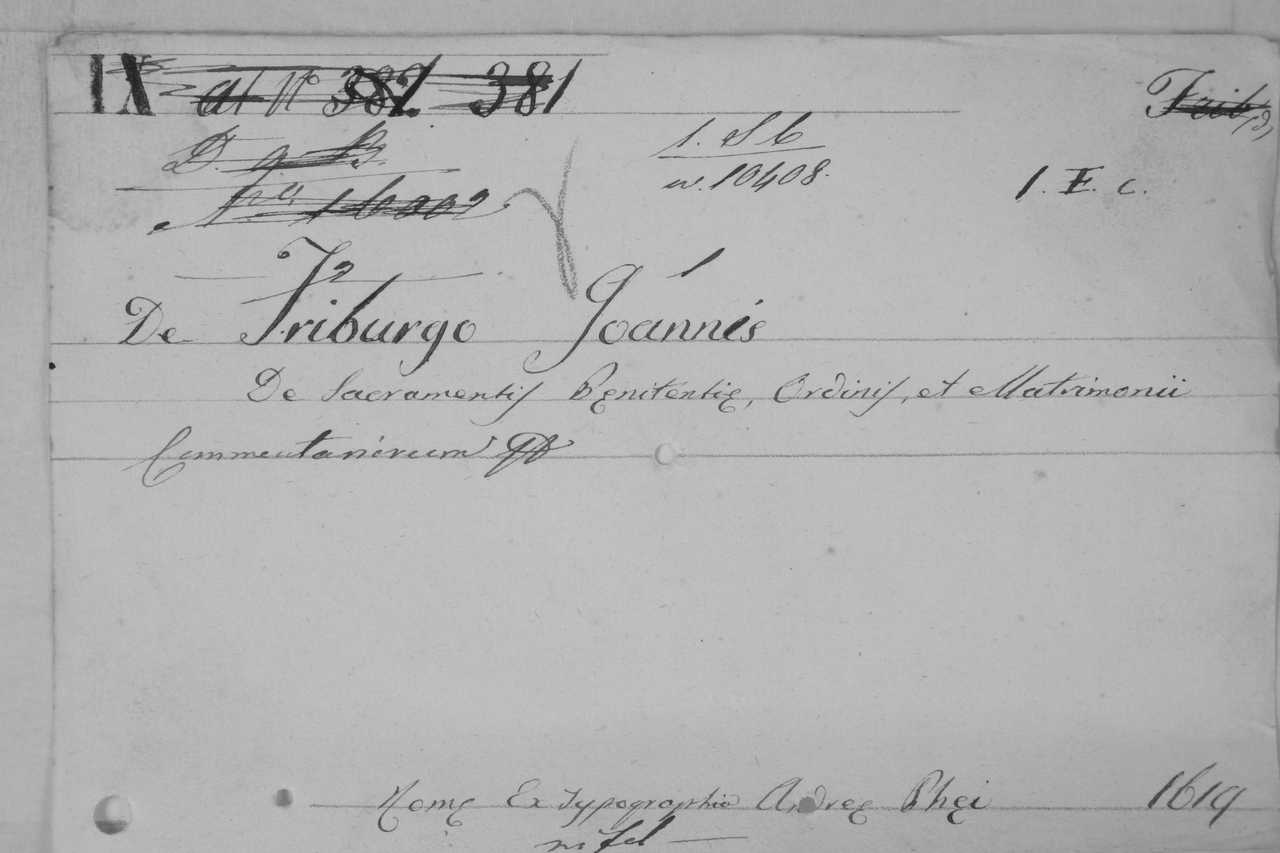 IX al N° 382 381
Frib
D. 9 B.
1. S b
N.ro 16202
w. 10408.
1. E. c.
De Friburgo Joánnis
De Sacramentis Pęnitentię, Ordinis, et Matrimonii
Commentariorum
Romę Ex Typographia Andreę Phęi 1619
in fol